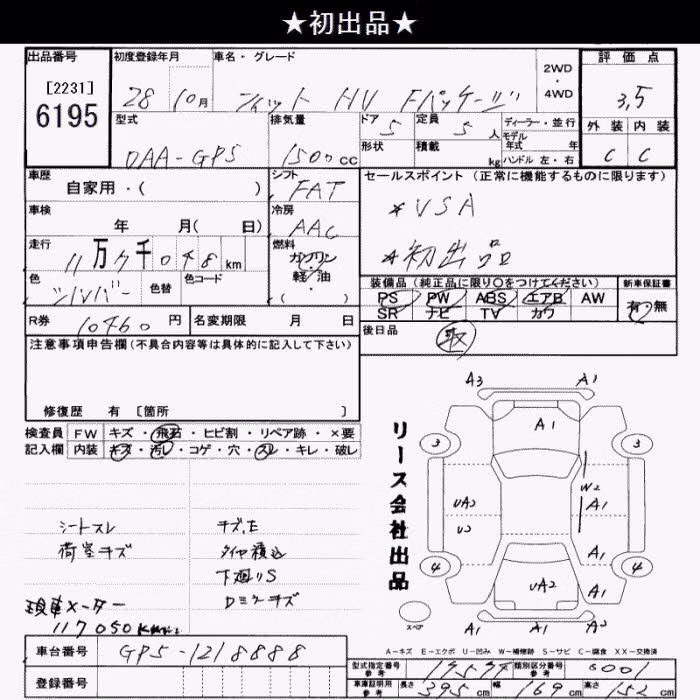 ★初出品★
出品番号 初度登録年月 車名・グレード 評価点
[2231]
6195
28 10月 フィット HV Fパッケージ 2WD・4WD 3,5
型式 排気量 ドア 定員 ディーラー・並行 外装 内装
DAA-GP5 1500cc 5 5人 モデル年式 年 C C
形状 積載 kg ハンドル 左・右
車歴 シフト セールスポイント (正常に機能するものに限ります)
自家用・( ) FAT
*VSA
車検 冷房
年 月( 日) AAC
*初出品
走行 燃料
11万7千048km ガソリン・軽油・( )
装備品 (純正品に限り○をつけてください) 新車保証書
色 色替 色コード
シルバー
PS PW ABS エアB AW 有・無
SR ナビ TV カワ
R券 10460円 名変期限 月 日
後日品 取
注意事項申告欄(不具合内容等は具体的に記入して下さい)
修復歴 有 [箇所 ]
検査員 FW キズ・飛石・ヒビ割・リペア跡・×要
記入欄 内装 キズ・汚レ・コゲ・穴・スレ・キレ・破レ
シートスレ キズ,E
荷室キズ タイヤ積込
下廻りS
Dミラーキズ
現車メーター
117050km
リース会社出品
A3 A1
A1
3 3
W2
UA2 A1
U2
A1
4 4
UA2 A2
スペア
A1 A1
A-キズ E-エクボ U-凹み W-補修跡 S-サビ C-腐食 XX-交換済
車台番号 GP5-1218888
登録番号
型式指定番号 参考 類別区分番号 参考 0001
車庫証明用 参考 長さ 395cm 幅 169cm 高さ 152cm